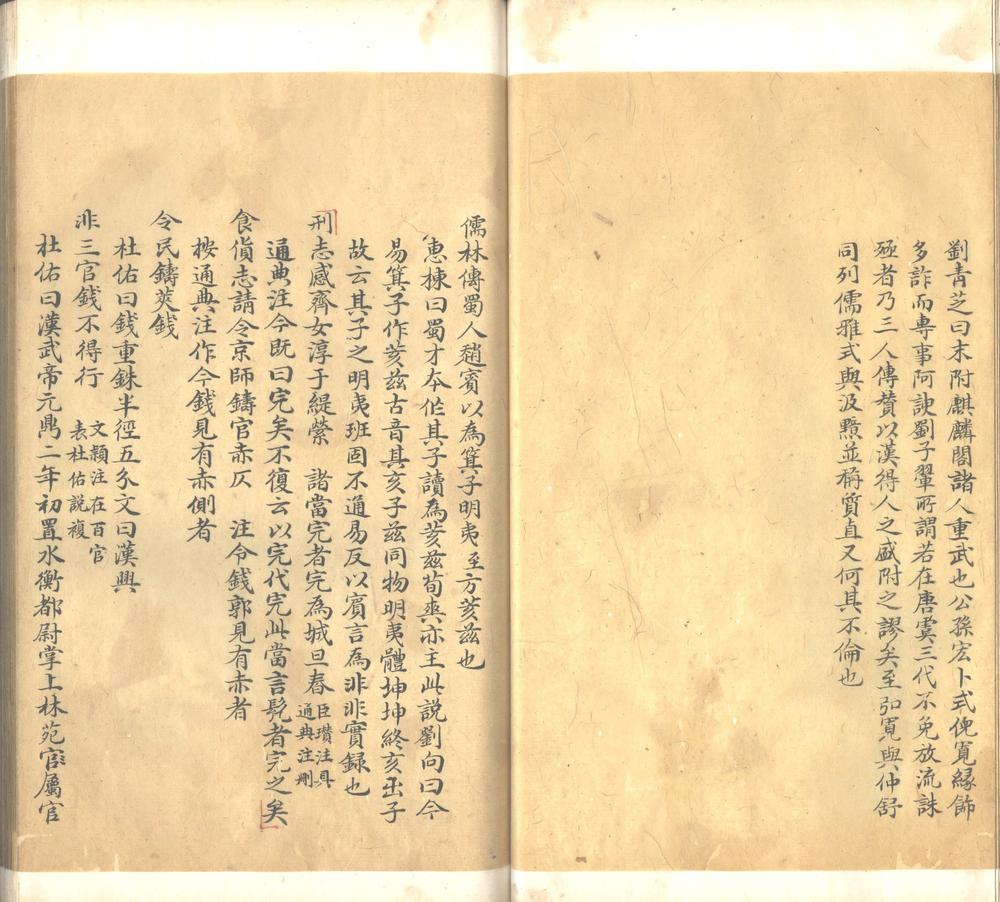 劉青芝曰末附麒麟閣諸人重武也公孫宏卜式倪寬緣飾
多詐而專事阿諛劉子翬所謂若在唐虞三代不免放流誅
殛者乃三人傳贊以漢得人之盛附之謬矣至弘寬與仲舒
同列儒雅式與汲黯並稱質直又何其不倫也
儒林傳蜀人趙賓以為箕子明夷至方荄茲也
惠棟曰蜀才本作其子讀為荄茲荀爽亦主此説劉向曰今
易箕子作荄茲古音其亥子茲同物明夷體坤坤終亥出子
故云其子之明夷班固不通易反以賓言為非非實録也
刑志感齊女淳于緹縈 諸當完者完為城旦舂 臣瓚注具
通典注刪
通典注今既曰完矣不復云以完代完此當言髡者完之矣
食貨志請令京師鑄官赤仄 注令錢郭見有赤者
按通典注作今錢見有赤側者
令民鑄莢錢
杜佑曰錢重銖半徑五分文曰漢興
非三官錢不得行 文穎注在百官
表杜佑説複
杜佑曰漢武帝元鼎二年初置水衡都尉掌上林苑官屬官